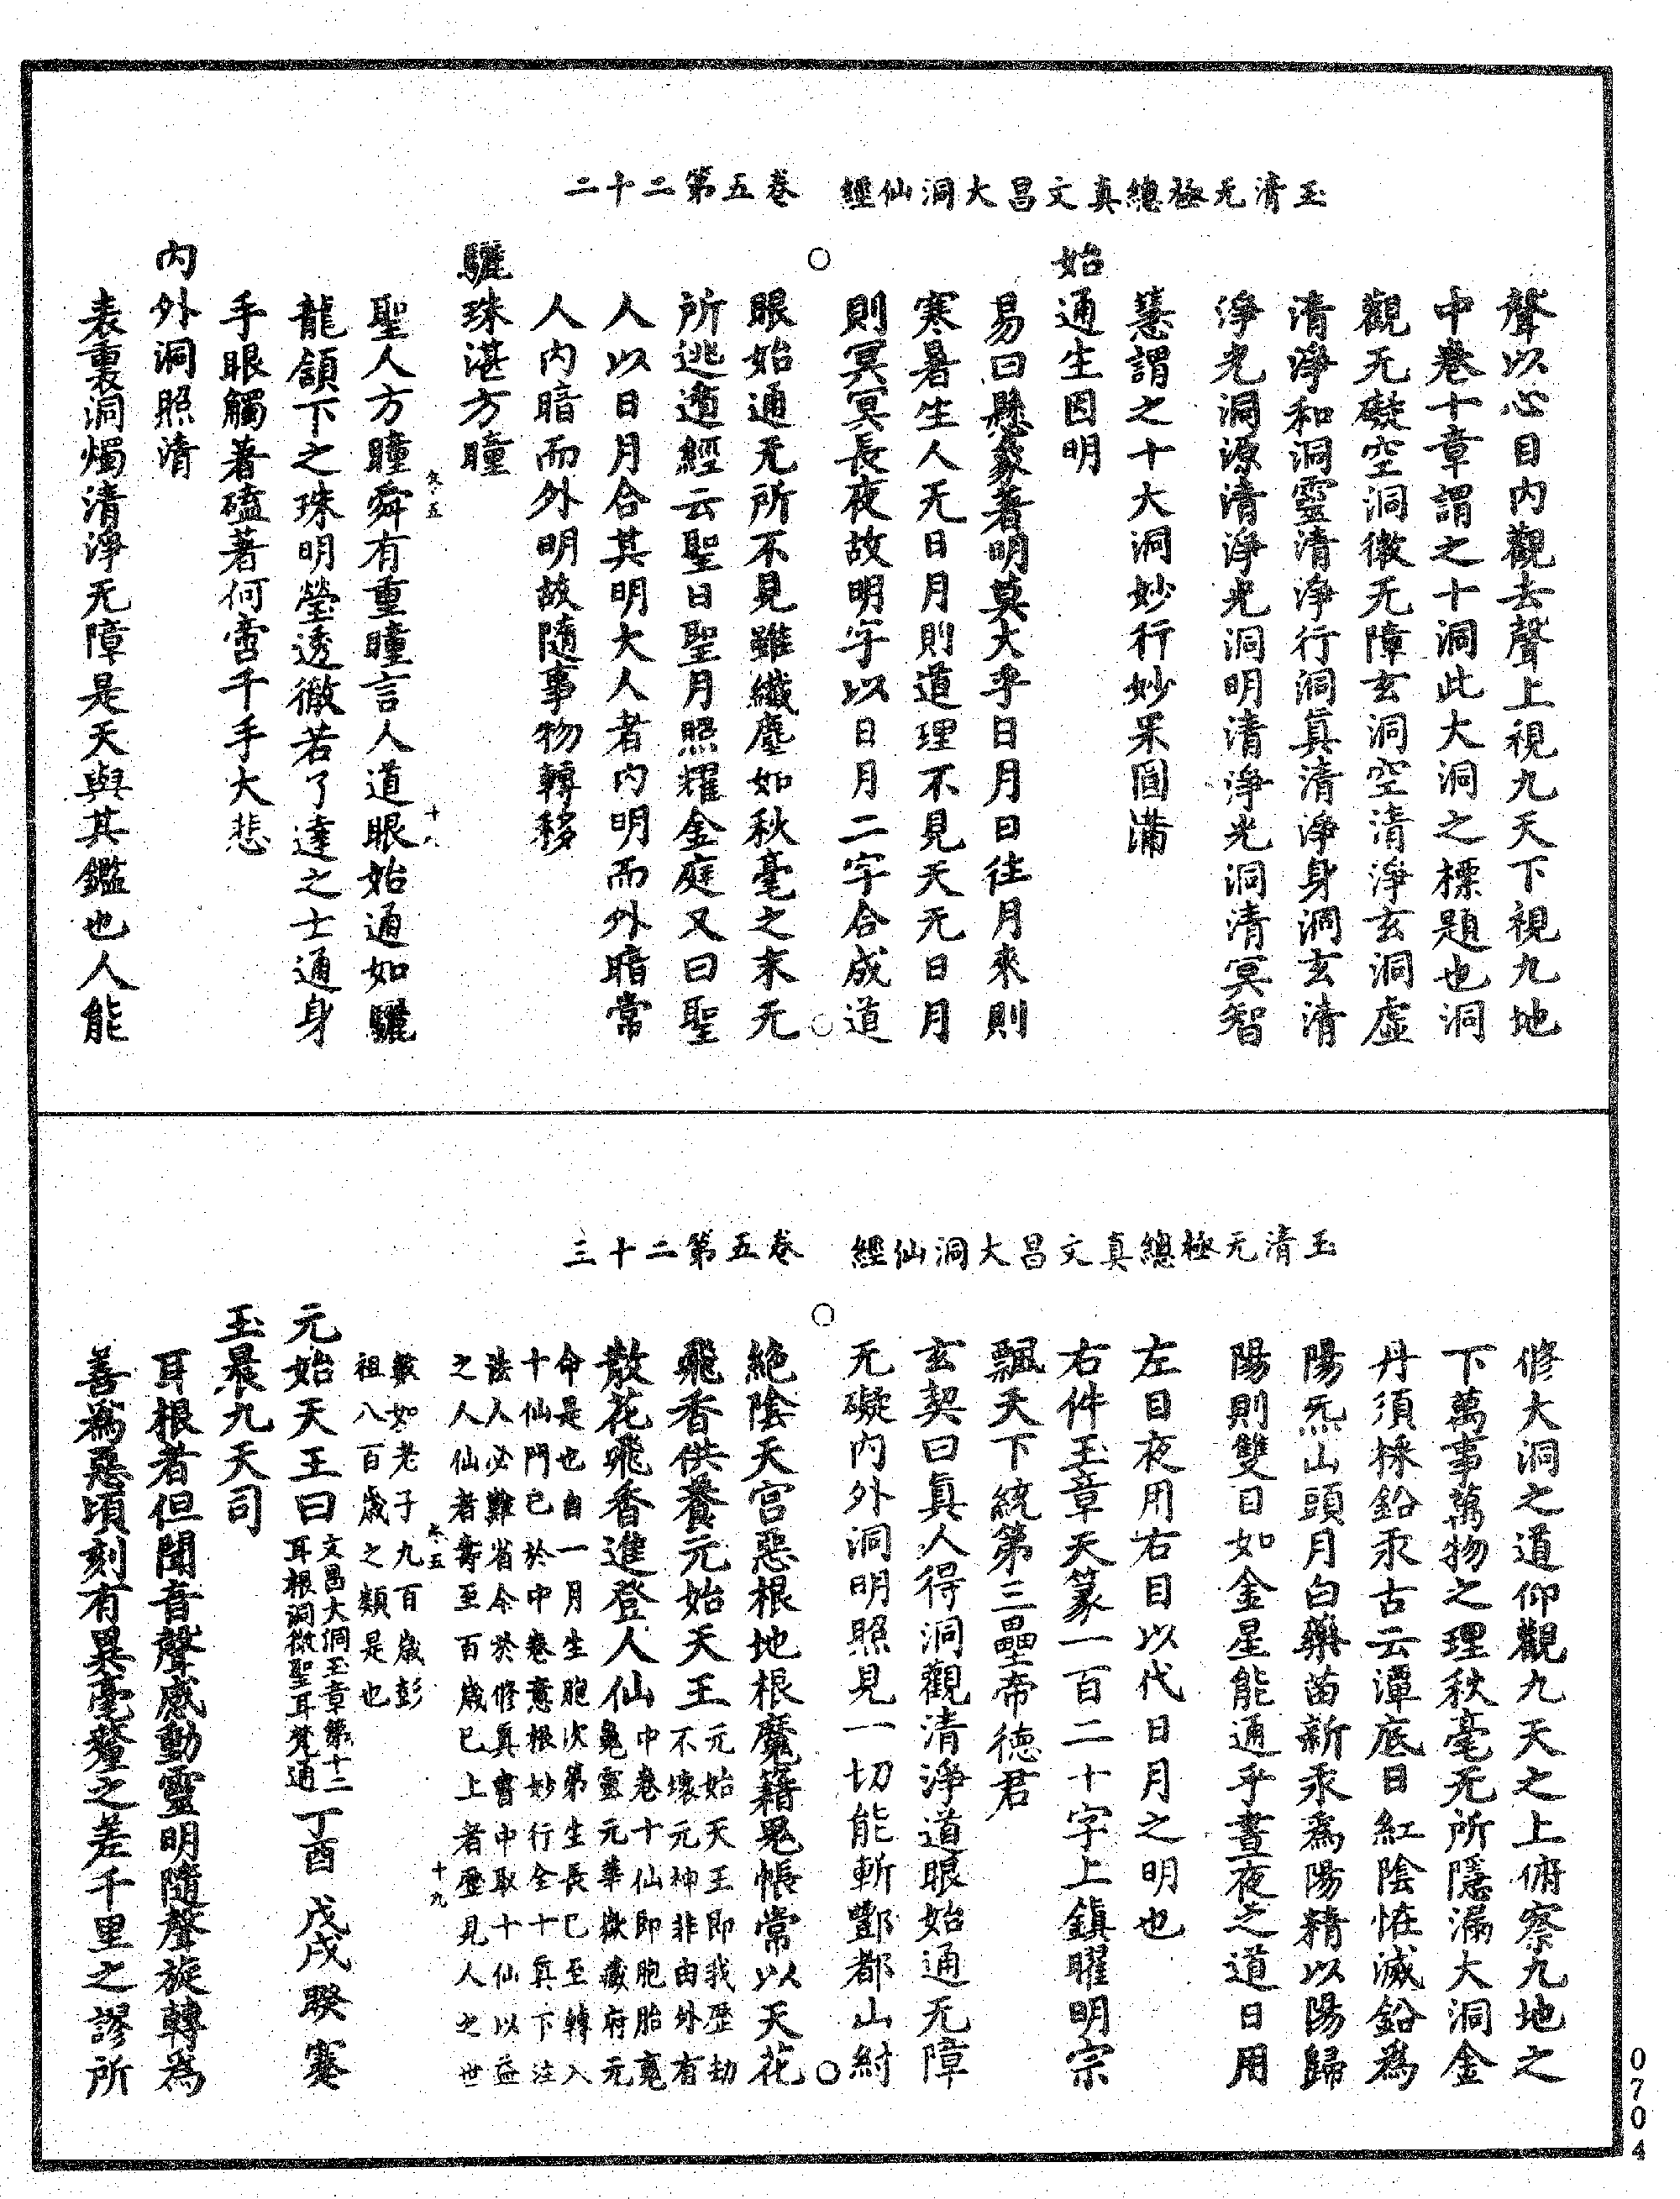 玉清无極總真文昌大洞仙經　卷五第二十二
聲以心目內觀去聲上視九天下視九地
中卷十章謂之十洞此大洞之標題也洞
觀无礙空洞徹无障玄洞空清淨玄洞虛
清淨和洞靈清淨行洞真清淨身洞玄清
淨光洞源清淨光洞明清淨光洞清冥智
慧謂之十大洞妙行妙果圓滿
始通生因明
易曰懸象著明莫大乎日月日往月來則
寒暑生人无日月則道理不見天无日月
則冥冥長夜故明字以日月二字合成道
眼始通无所不見雖纖塵如秋毫之末无
所逃遁經云聖日聖月照耀金庭又曰聖
人以日月合其明大人者內明而外暗常
人內暗而外明故隨事物轉移
驪珠湛方瞳
聖人方瞳舜有重瞳言人道眼始通如驪
龍頷下之珠明瑩透徹若了達之士通身
手眼觸著磕著何啻千手大悲
內外洞照清
表裏洞燭清淨无障是天與其鑑也人能
卷五
十八
玉清无極總真文昌大洞仙經　卷五第二十三
修大洞之道仰觀九天之上俯察九地之
下萬事萬物之理秋毫无所隱漏大洞金
丹須採鉛汞古云潭底日紅陰恠滅鉛為
陽炁山頭月白藥苗新汞為陽精以陽歸
陽則雙目如金星能通乎晝夜之道日用
左目夜用右目以代日月之明也
右件玉章天篆一百二十字上鎮曜明宗
飄天下統第三壘帝德君
玄契曰真人得洞觀清淨道眼始通无障
无礙內外洞明照見一切能斬酆都山紂
絕陰天宮惡根地根魔籍鬼帳常以天花
飛香供養元始天王元始天王即我歷劫不壞元神非由外有
散花飛香進登人仙中卷十仙即胞胎竟鬼靈元華嶽藏府元
命是也自一月生胞次第生長已至轉入
十仙門已於中卷意根妙行全十真下注
法人必難省今於修真書中取十仙以益
之人仙者壽至百歲已上者歷見人之世
數如老子九百歲彭
祖八百歲之類是也
元始天王曰文昌大洞玉章第十二耳根洞徹聖耳梵通丁酉　戊戌　睽　蹇
玉晨九天司
耳根者但聞音聲感動靈明隨聲旋轉為
善為惡頃刻有異毫釐之差千里之謬所
卷五
十九
0704